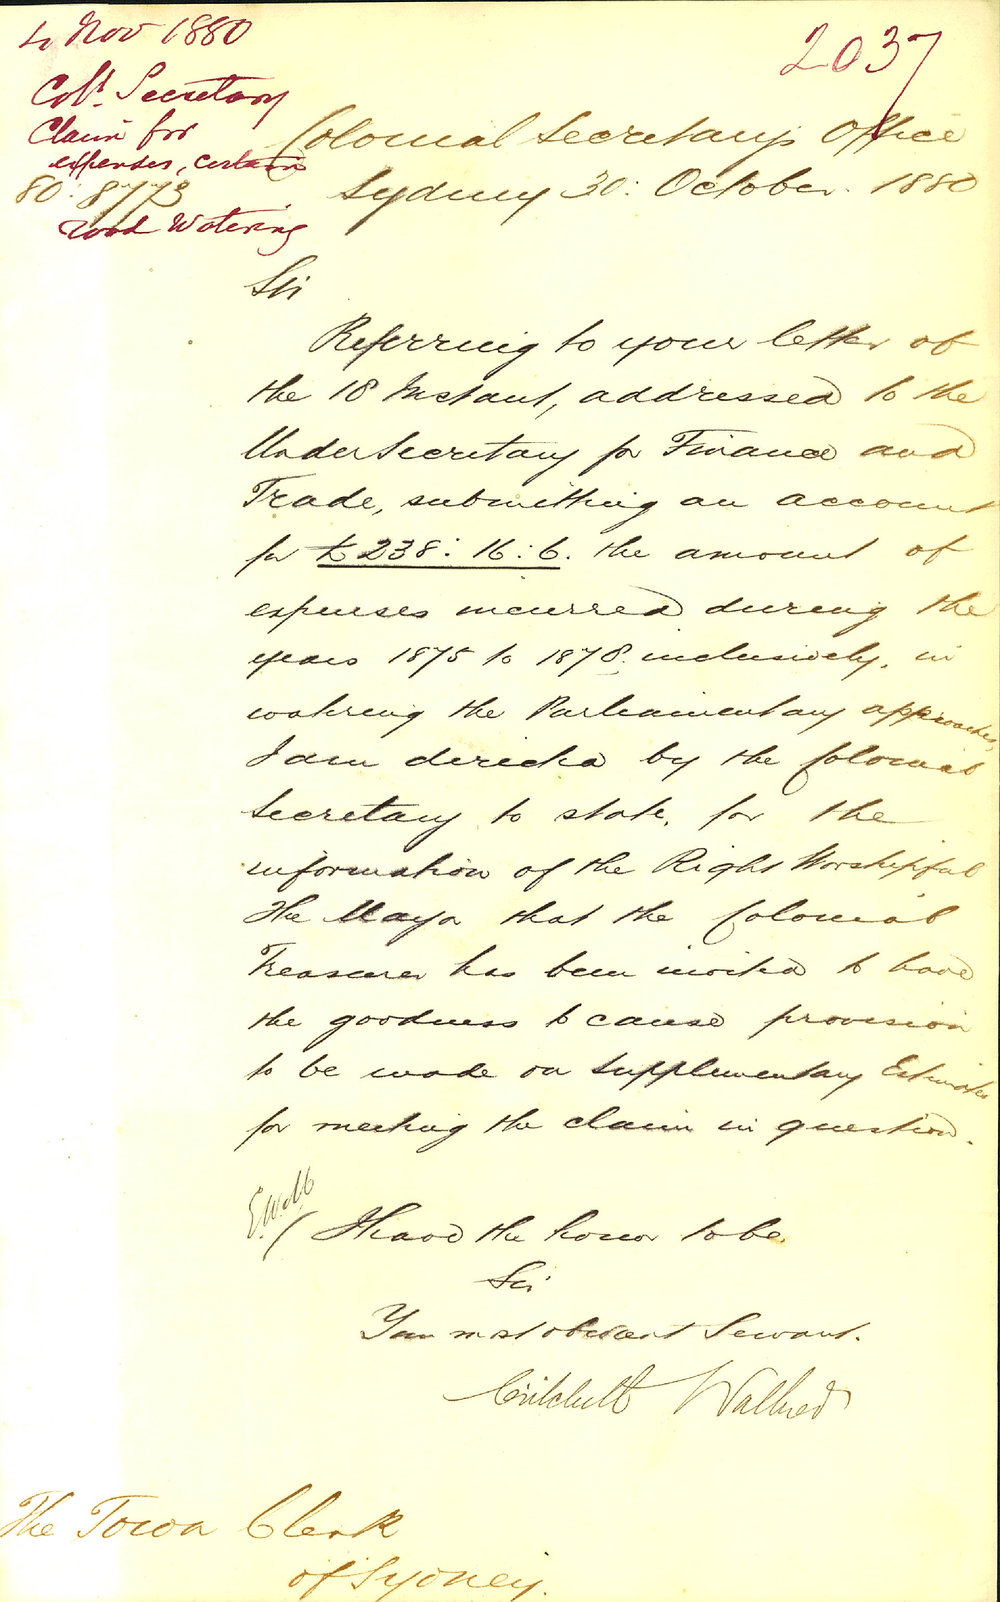 4 Nov 1880
2037
Coll. Secretary
Claim for
expenses, certain
road Watering
80: 8773
Colonial Secretary's Office
Sydney 30: October. 1880
Sir
Referring to your letter of
the 18 Instant, addressed to the
Under Secretary for Finance and
Trade, submitting an account
for £238: 16: 6. the amount of
expenses incurred during the
years 1875 to 1878. inclusively, in
watering the Parliamentary approaches,
I am directed by the Colonial
Secretary to state, for the
information of the Right Worshipful
The Mayor that the Colonial
Treasurer has been invited to have
the goodness to cause provision
to be made on Supplementary Estimates
for meeting the claim in question.
I have the honor to be
Sir
Your most obedient Servant.
Critchett Walker
The Town Clerk
of Sydney.